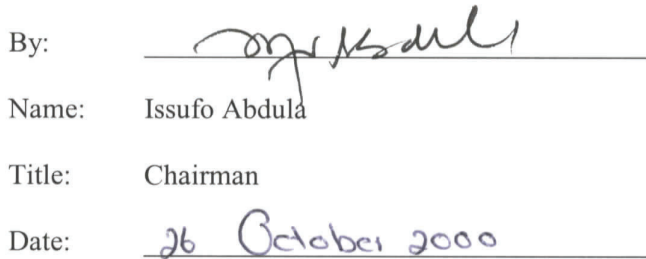 By:
Name: Issufo Abdula
Title: Chairman
Date: 26 October 2000